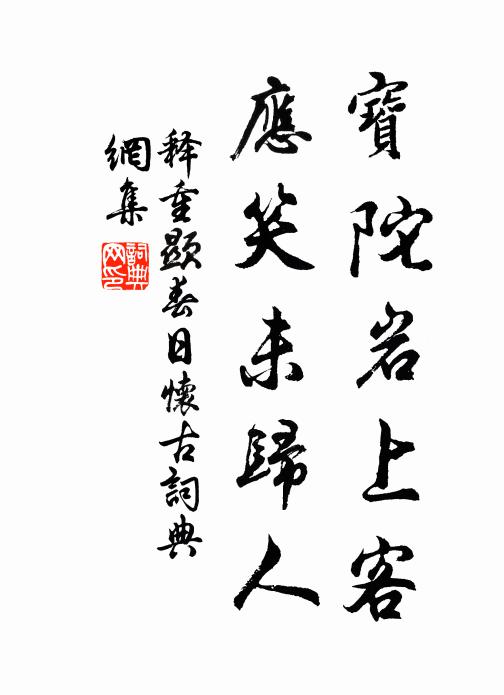 寶陀岩上客
應笑未歸人
释重顯春日懷古詞典
網集
詞典
网印